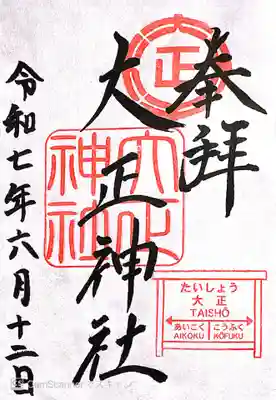 奉拝
正
大正神社
大正
神社
令和七年六月十二日
たいしょう
大正
TAISHŌ
あいこく こうふく
AIKOKU KŌFUKU
CamScannerでスキャン